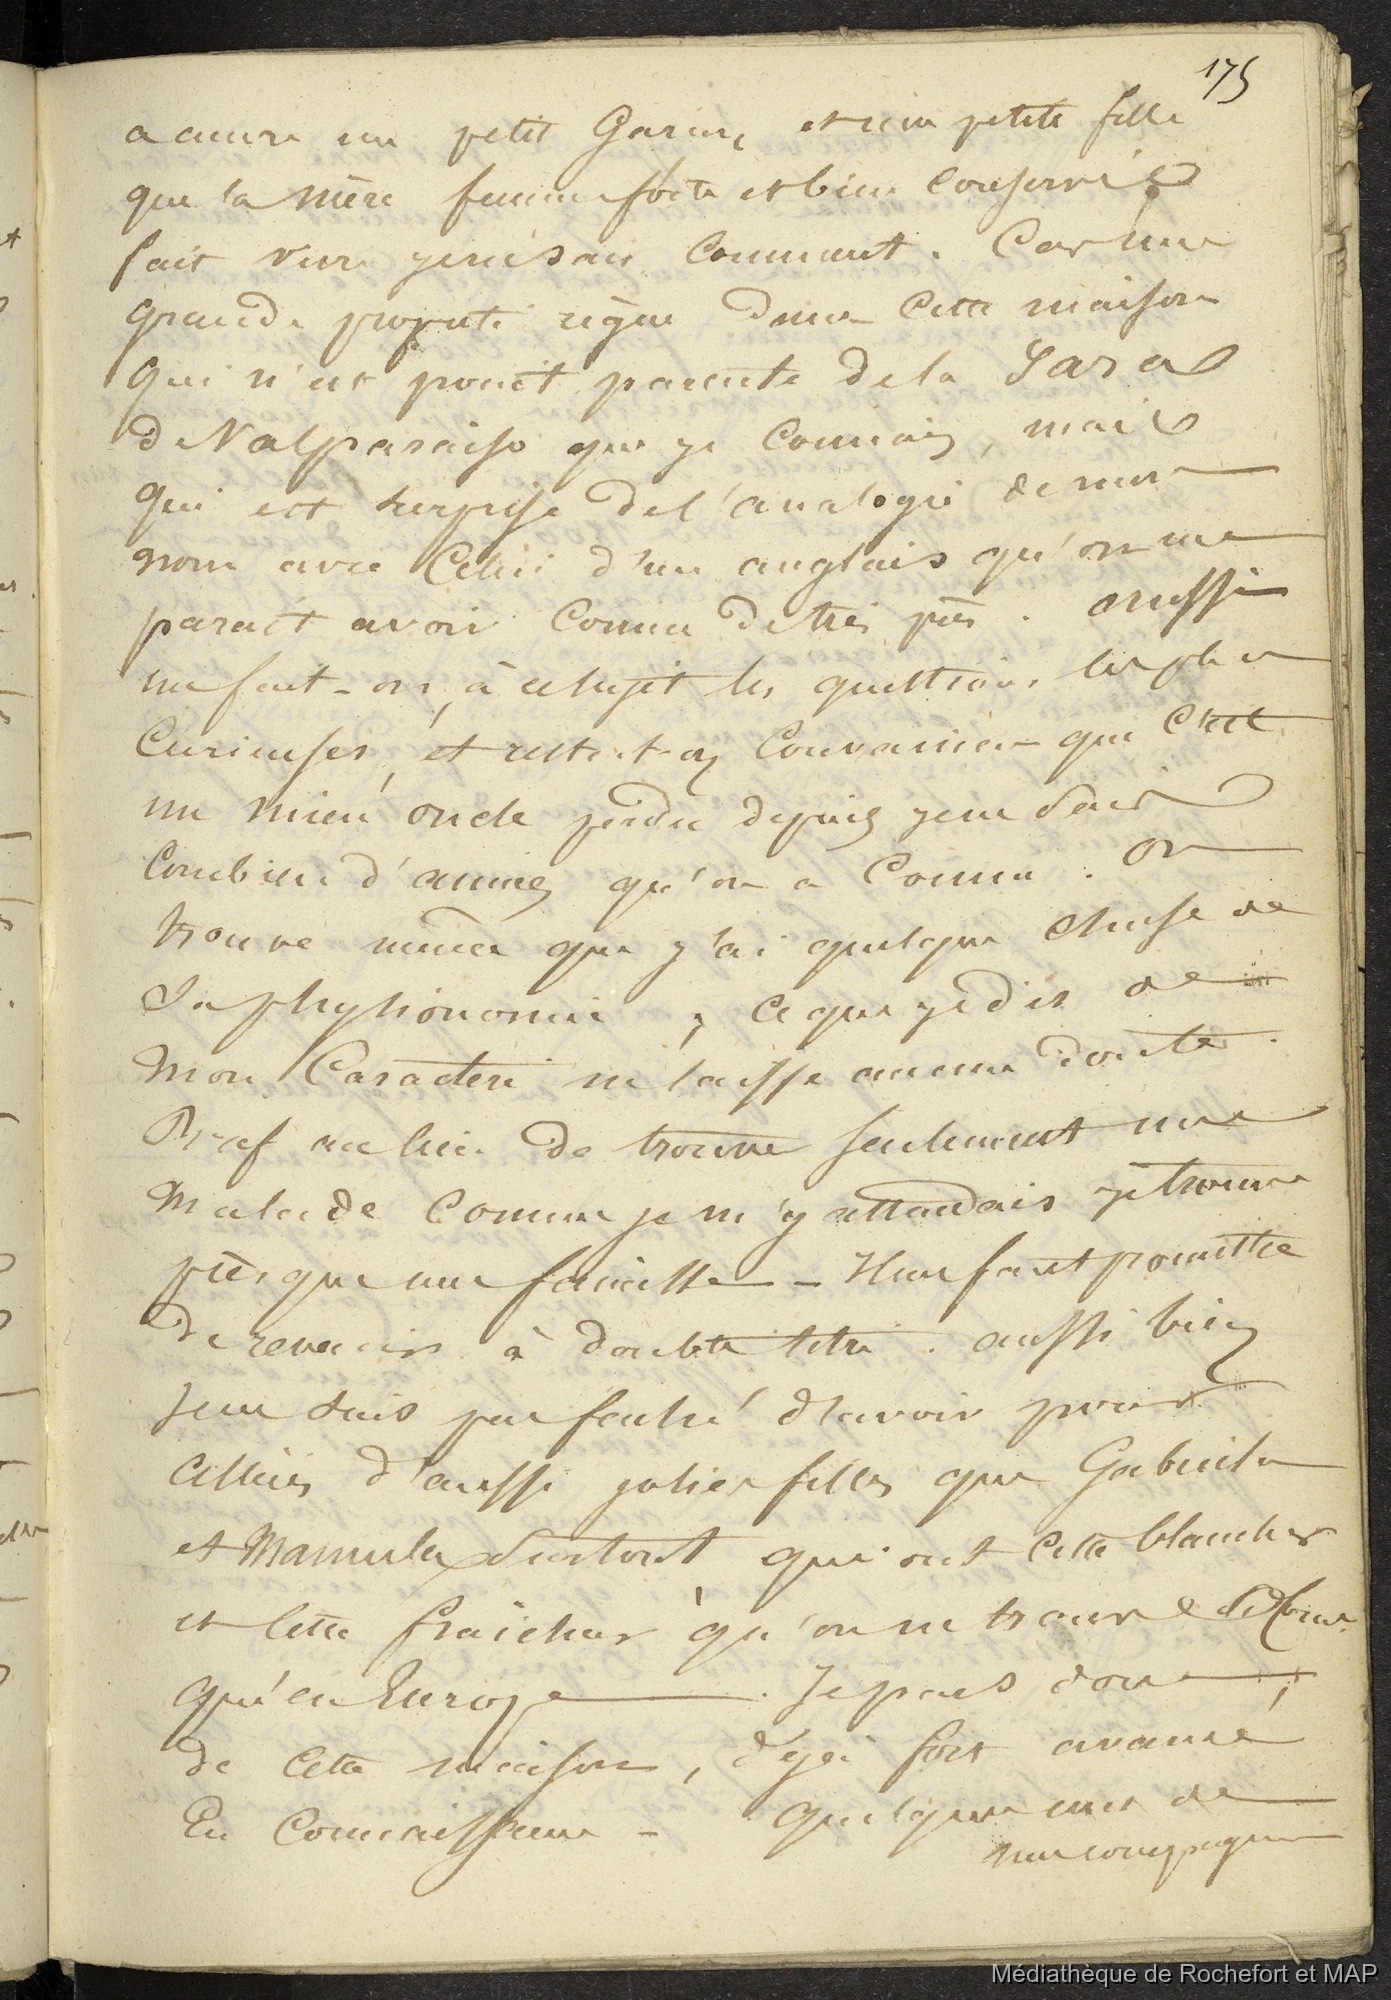 175
a encore un petit Garçon, et une petite fille
que la mère femme forte et bien conservée
fait vivre je ne sais comment. Car une
grande propreté règne dans cette maison
qui n'est point parente de la Sara
de Valparaiso que je connais, mais
qui est surprise de l'analogie de mon
nom avec celui d'un anglais qu'on me
parait avoir connu de très près. aussi
me fait-on, à ce sujet les questions les plus
curieuses, et reste-t-on convaincu que c'est
un mien oncle perdu depuis je ne sais
combien d'années qu'on a connu. On
trouve même que j'ai quelque chose de
sa physionomie, ce que je dis de
mon caractère ne laisse aucun doute.
Bref au lieu de trouver seulement une
malade comme je m'y attendais je trouve
presque une famille - Il me faut promettre
de revenir à double titre. aussi bien
je ne suis pas faché d'avoir pour
alliées d'aussi jolies filles que Gabriela
et Manuela surtout qui ont cette blancheur
et cette fraîcheur qu'on ne trouve
qu'en Europe. Je pars donc
de cette maison, déjà fort avancé
En connaissance - quelques uns de
mes compagnons
Médiathèque de Rochefort et MAP